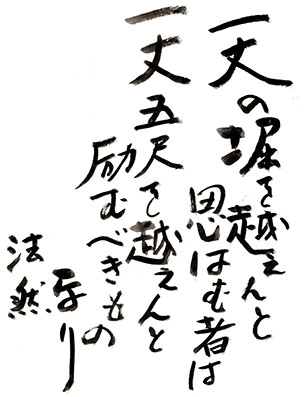 一丈の堀を越えんと
思はむ者は
一丈五尺を越えんと
励むべきもの
なり
法然